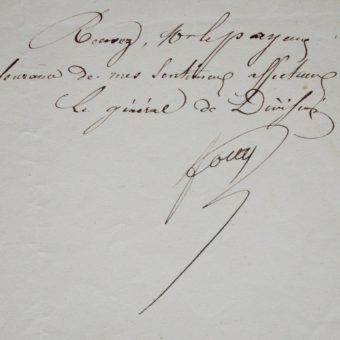 Recevez, Mr le payeur
ssurance de mes sentimens affectueux
Le général de Division
Forey